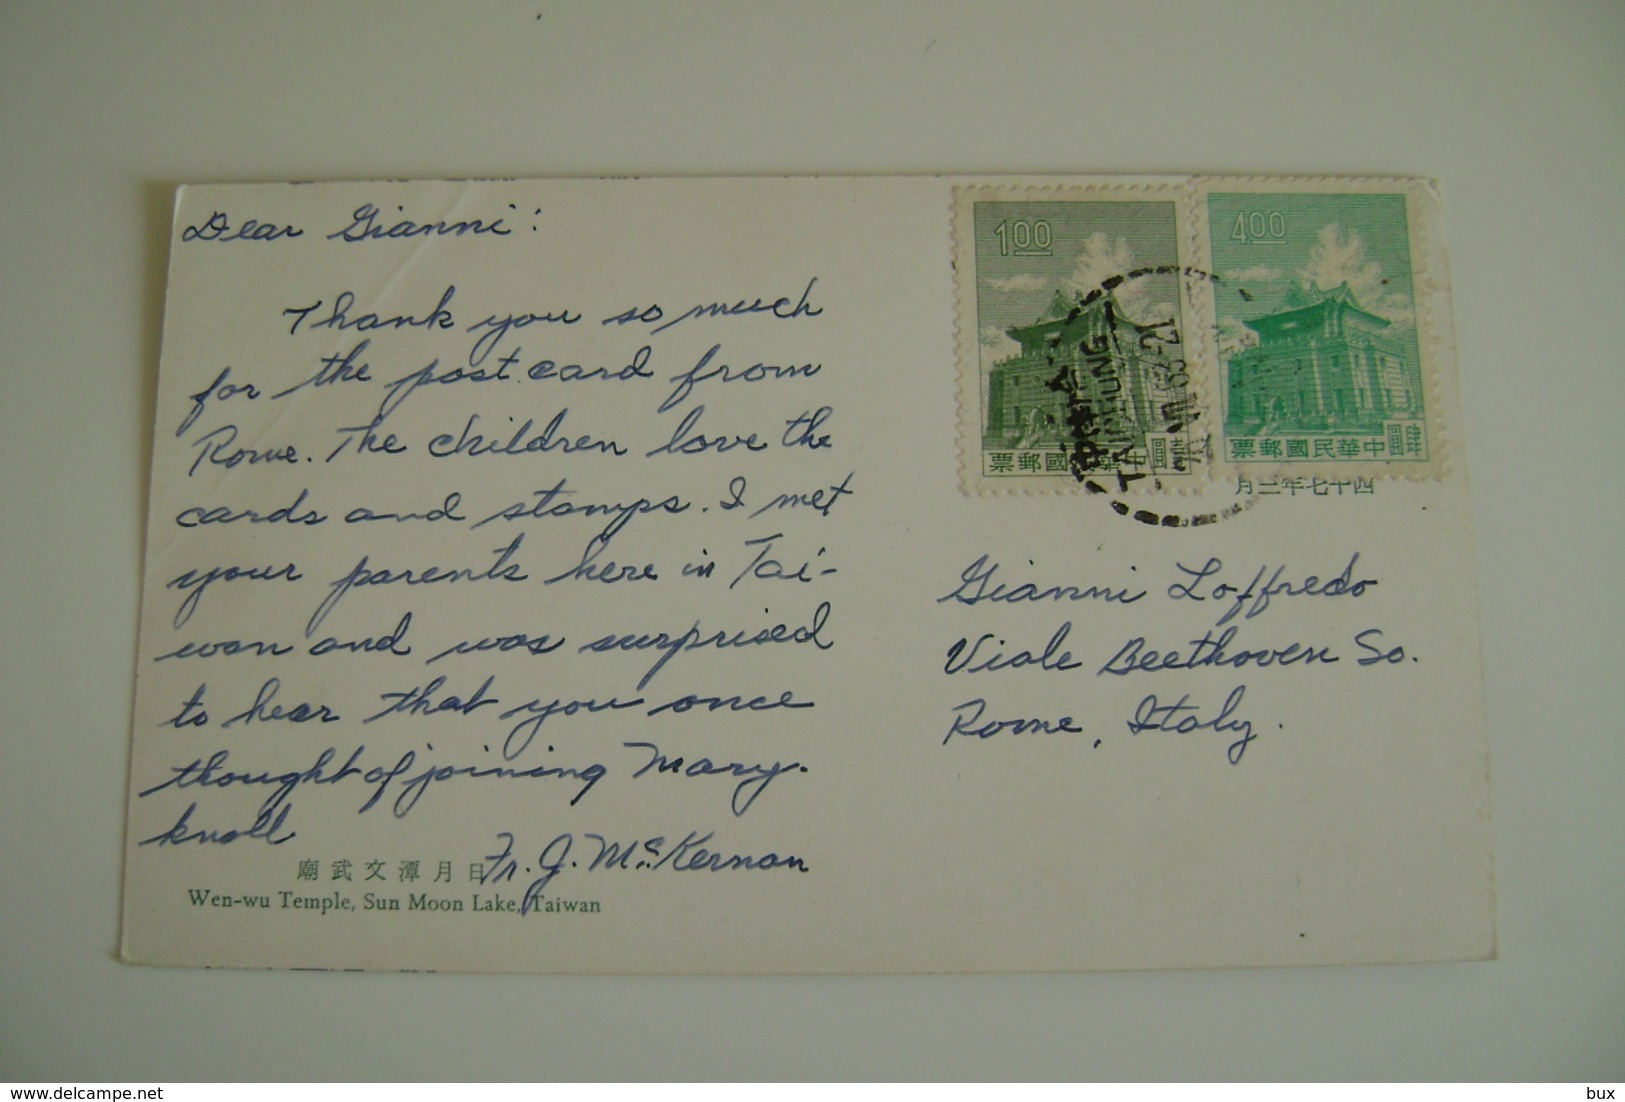 Dear Gianni:
Thank you so much
for the post card from
Rome. The children love the
cards and stamps. I met
your parents here in Tai-
wan and was surprised
to hear that you once
thought of joining Mary-
knoll
Fr. J. McKernan
廟武文潭月日
Wen-wu Temple, Sun Moon Lake, Taiwan
1.00
票郵國民華中
壹圓
4.00
票郵國民華中
肆圓
TAICHUNG
月三年七十四
Gianni Loffredo
Viale Beethoven So.
Rome, Italy.
delcampe.net
bux